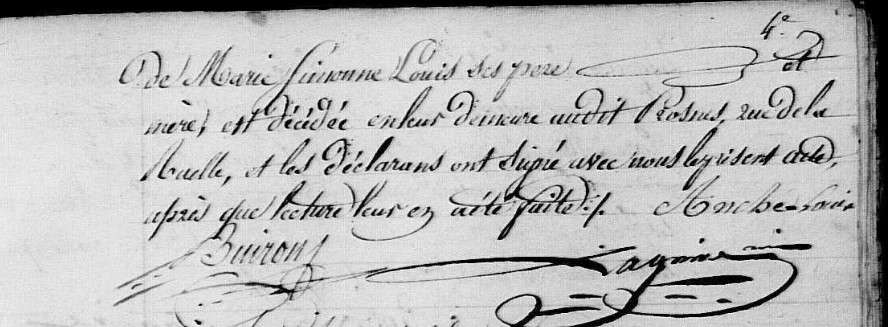 4e
De Marie Simonne Louis ses pere et
mère, est décédée en leur demeure audit Prosnes, rue de la
Ruelle, et les déclarans ont signé avec nous le présent acte,
après que lecture leur en a été faite ./. Anché Louis
Buiron Lagnive